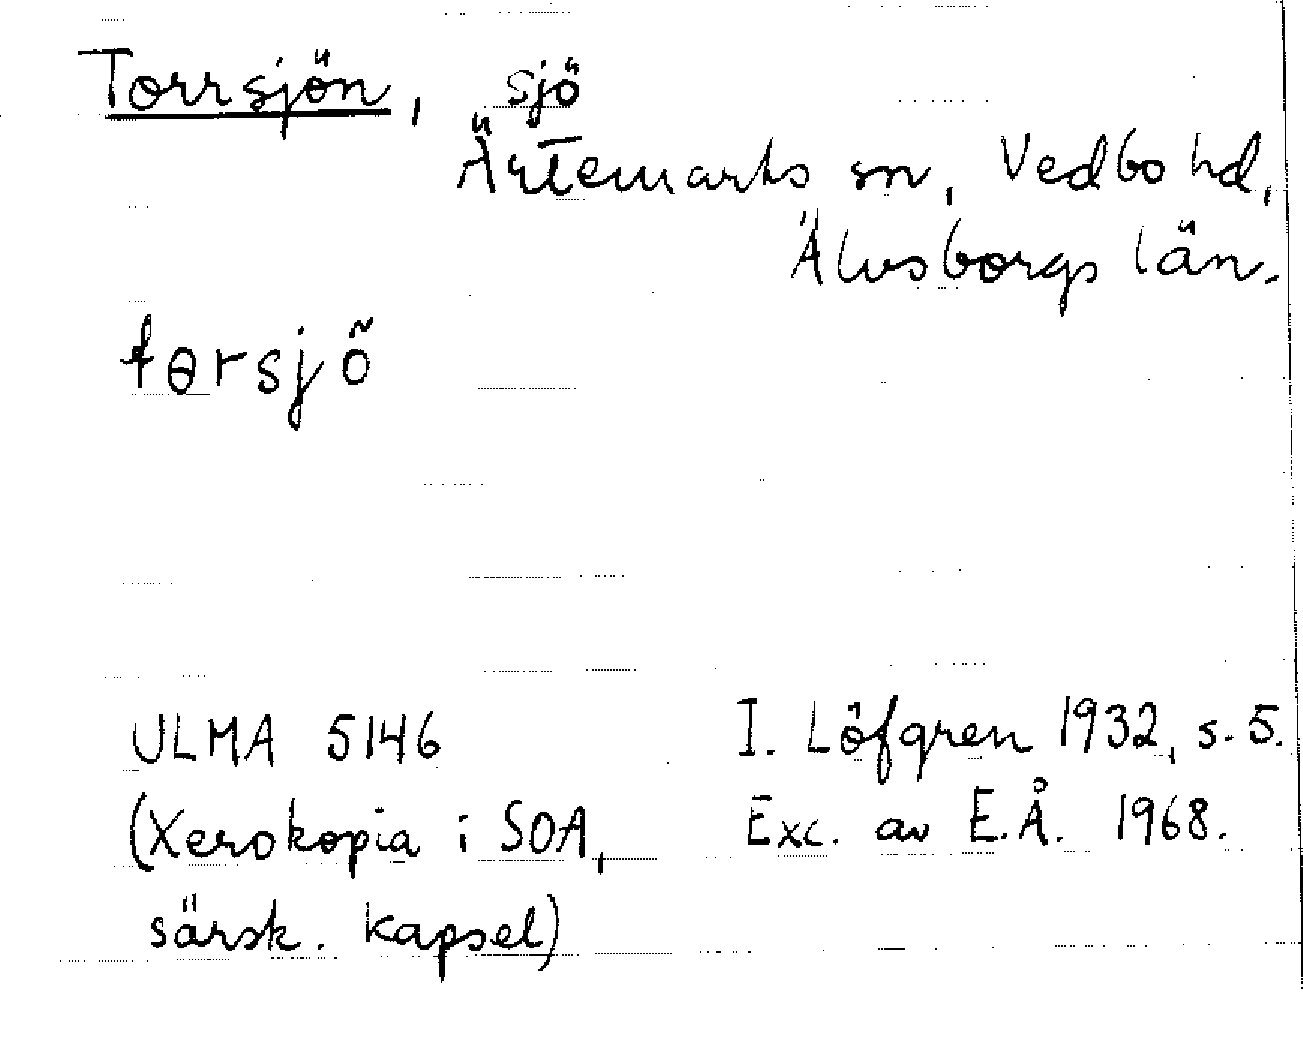 Torrsjön, sjö
Ärtemarks sn, Vedbo hd,
Älvsborgs län.
tɵrsjö̃
ULMA 5146
(Xerokopia i SOA,
särsk. kapsel)
I. Löfgren 1932, s. 5.
Exc. av E.Å. 1968.